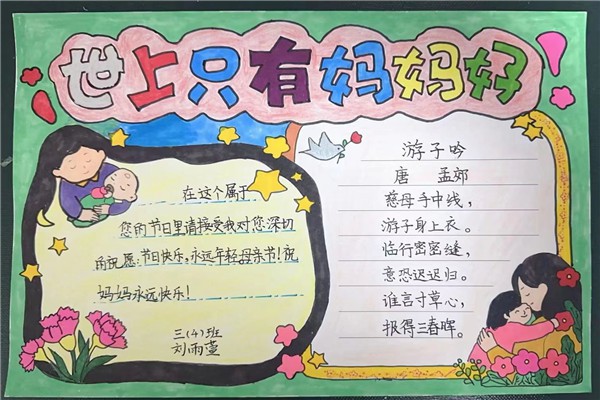 世上只有妈妈好
在这个属于
您的节日里请接受我对您深切
的祝愿:节日快乐,永远年轻,母亲节!祝
妈妈永远快乐!
三(4)班
刘雨萱
游子吟
唐 孟郊
慈母手中线,
游子身上衣。
临行密密缝,
意恐迟迟归。
谁言寸草心,
报得三春晖。